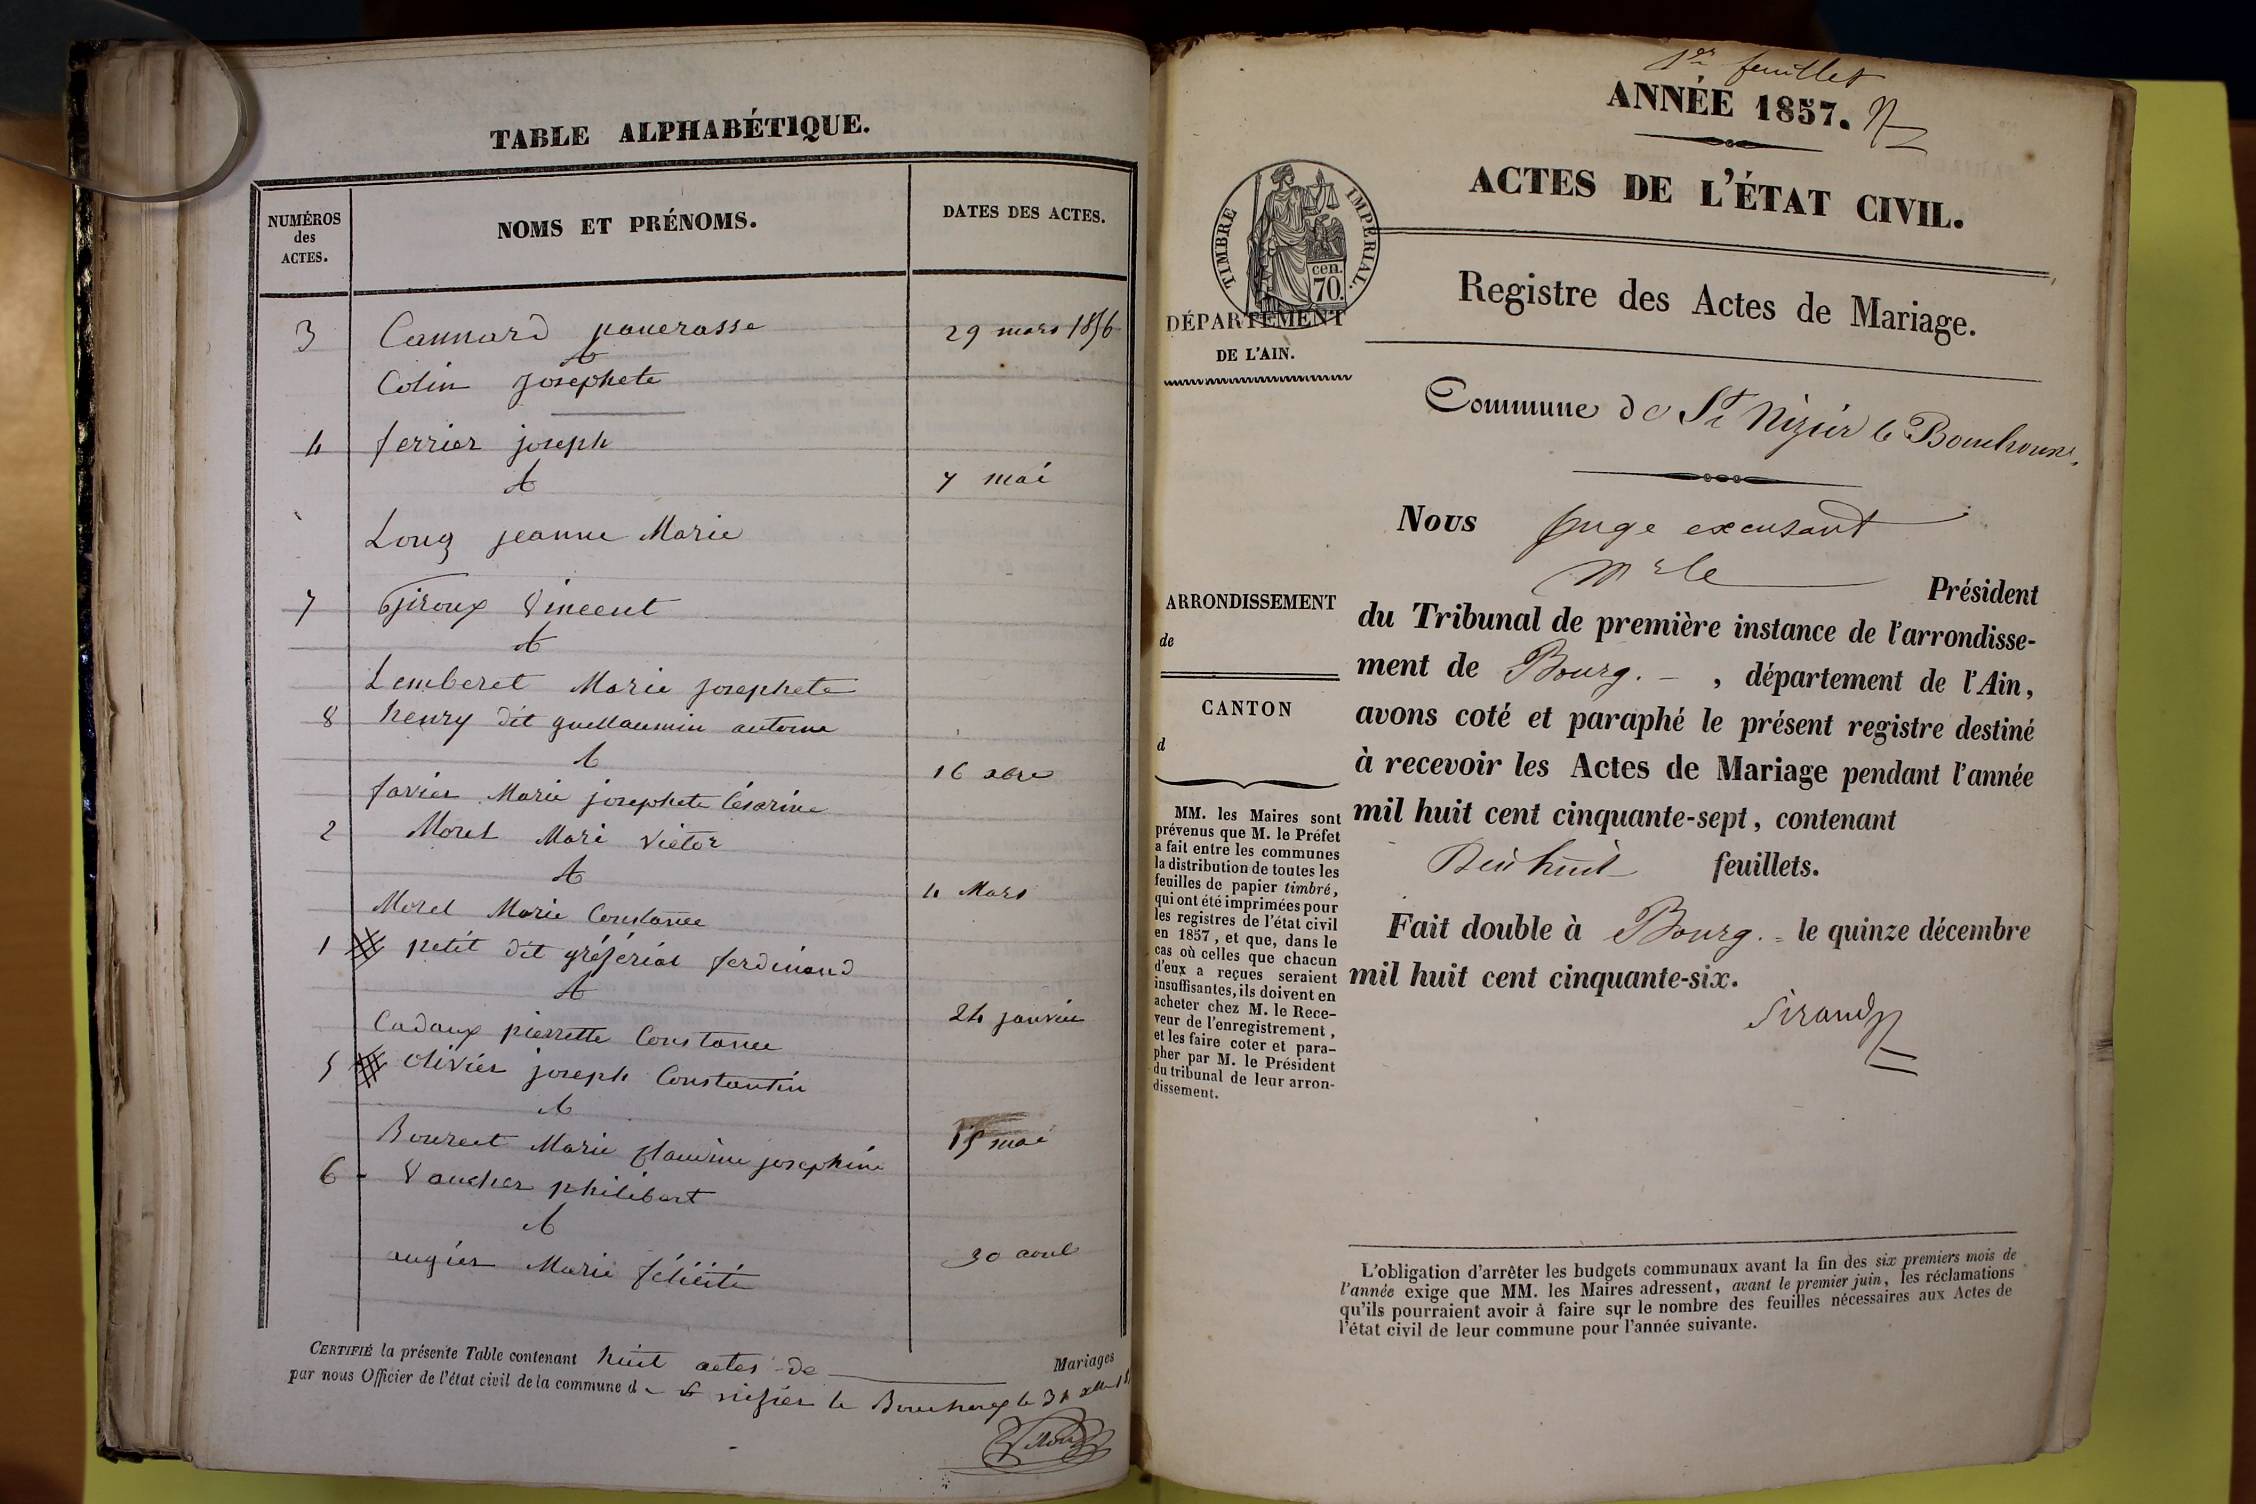 TABLE ALPHABÉTIQUE.
NUMÉROS
des
ACTES.
NOMS ET PRÉNOMS.
DATES DES ACTES.
3 Cannard pancrasse 29 mars 1856
&
Colin Josephete
4 ferrier joseph
& 7 mai
Long jeanne Marie
7 Giroux Vincent
&
Lemberet Marie Josephete
8 henry dit guillaumin antoine
& 16 xbre
favier Marie josephete Césarine
2 Morel Mari Victor
& 4 Mars
Morel Marie Constance
1 petit dit ferdinand
& 24 janvier
Cadoux pierrette Constance
5 Olivier joseph Constantin
& 15 mai
Marie josephine
6 - Vaucher philibert
&
augier Marie félicité 30 aout
CERTIFIÉ la présente Table contenant huit actes de Mariages
par nous Officier de l'état civil de la commune de St nizier le Bouchoux le 31 xbre
1er feuillet
ANNÉE 1857.
ACTES DE L'ÉTAT CIVIL.
TIMBRE IMPÉRIAL.
cen.
70.
DÉPARTEMENT
DE L'AIN.
Registre des Actes de Mariage.
Commune de St Nizier le Bouchoux.
Nous Juge excusant
Mr le Président
du Tribunal de première instance de l'arrondisse-
ment de Bourg. - , département de l'Ain,
avons coté et paraphé le présent registre destiné
à recevoir les Actes de Mariage pendant l'année
mil huit cent cinquante-sept, contenant
Dix huit feuillets.
Fait double à Bourg. = le quinze décembre
mil huit cent cinquante-six.
Sirand
ARRONDISSEMENT
de
CANTON
d
MM. les Maires sont
prévenus que M. le Préfet
a fait entre les communes
la distribution de toutes les
feuilles de papier timbré,
qui ont été imprimées pour
les registres de l'état civil
en 1857, et que, dans le
cas où celles que chacun
d'eux a reçues seraient
insuffisantes, ils doivent en
acheter chez M. le Rece-
veur de l'enregistrement,
et les faire coter et para-
pher par M. le Président
du tribunal de leur arron-
dissement.
L'obligation d'arrêter les budgets communaux avant la fin des six premiers mois de
l'année exige que MM. les Maires adressent, avant le premier juin, les réclamations
qu'ils pourraient avoir à faire sur le nombre des feuilles nécessaires aux Actes de
l'état civil de leur commune pour l'année suivante.